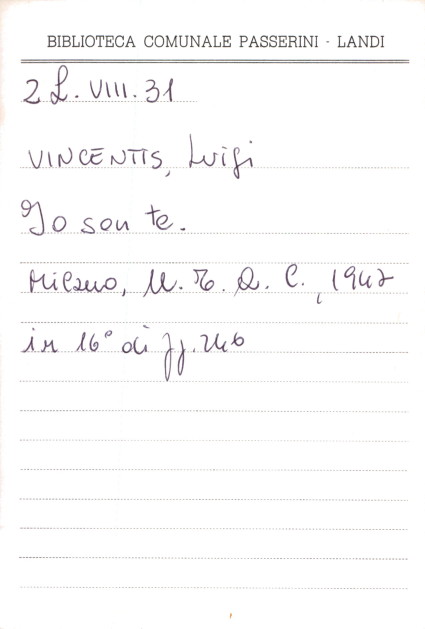 BIBLIOTECA COMUNALE PASSERINI - LANDI
2 L. VIII. 31
VINCENTIS, Luigi
Io son te.
Milano, M. E. D. C., 1947
in 16° di pp. 246